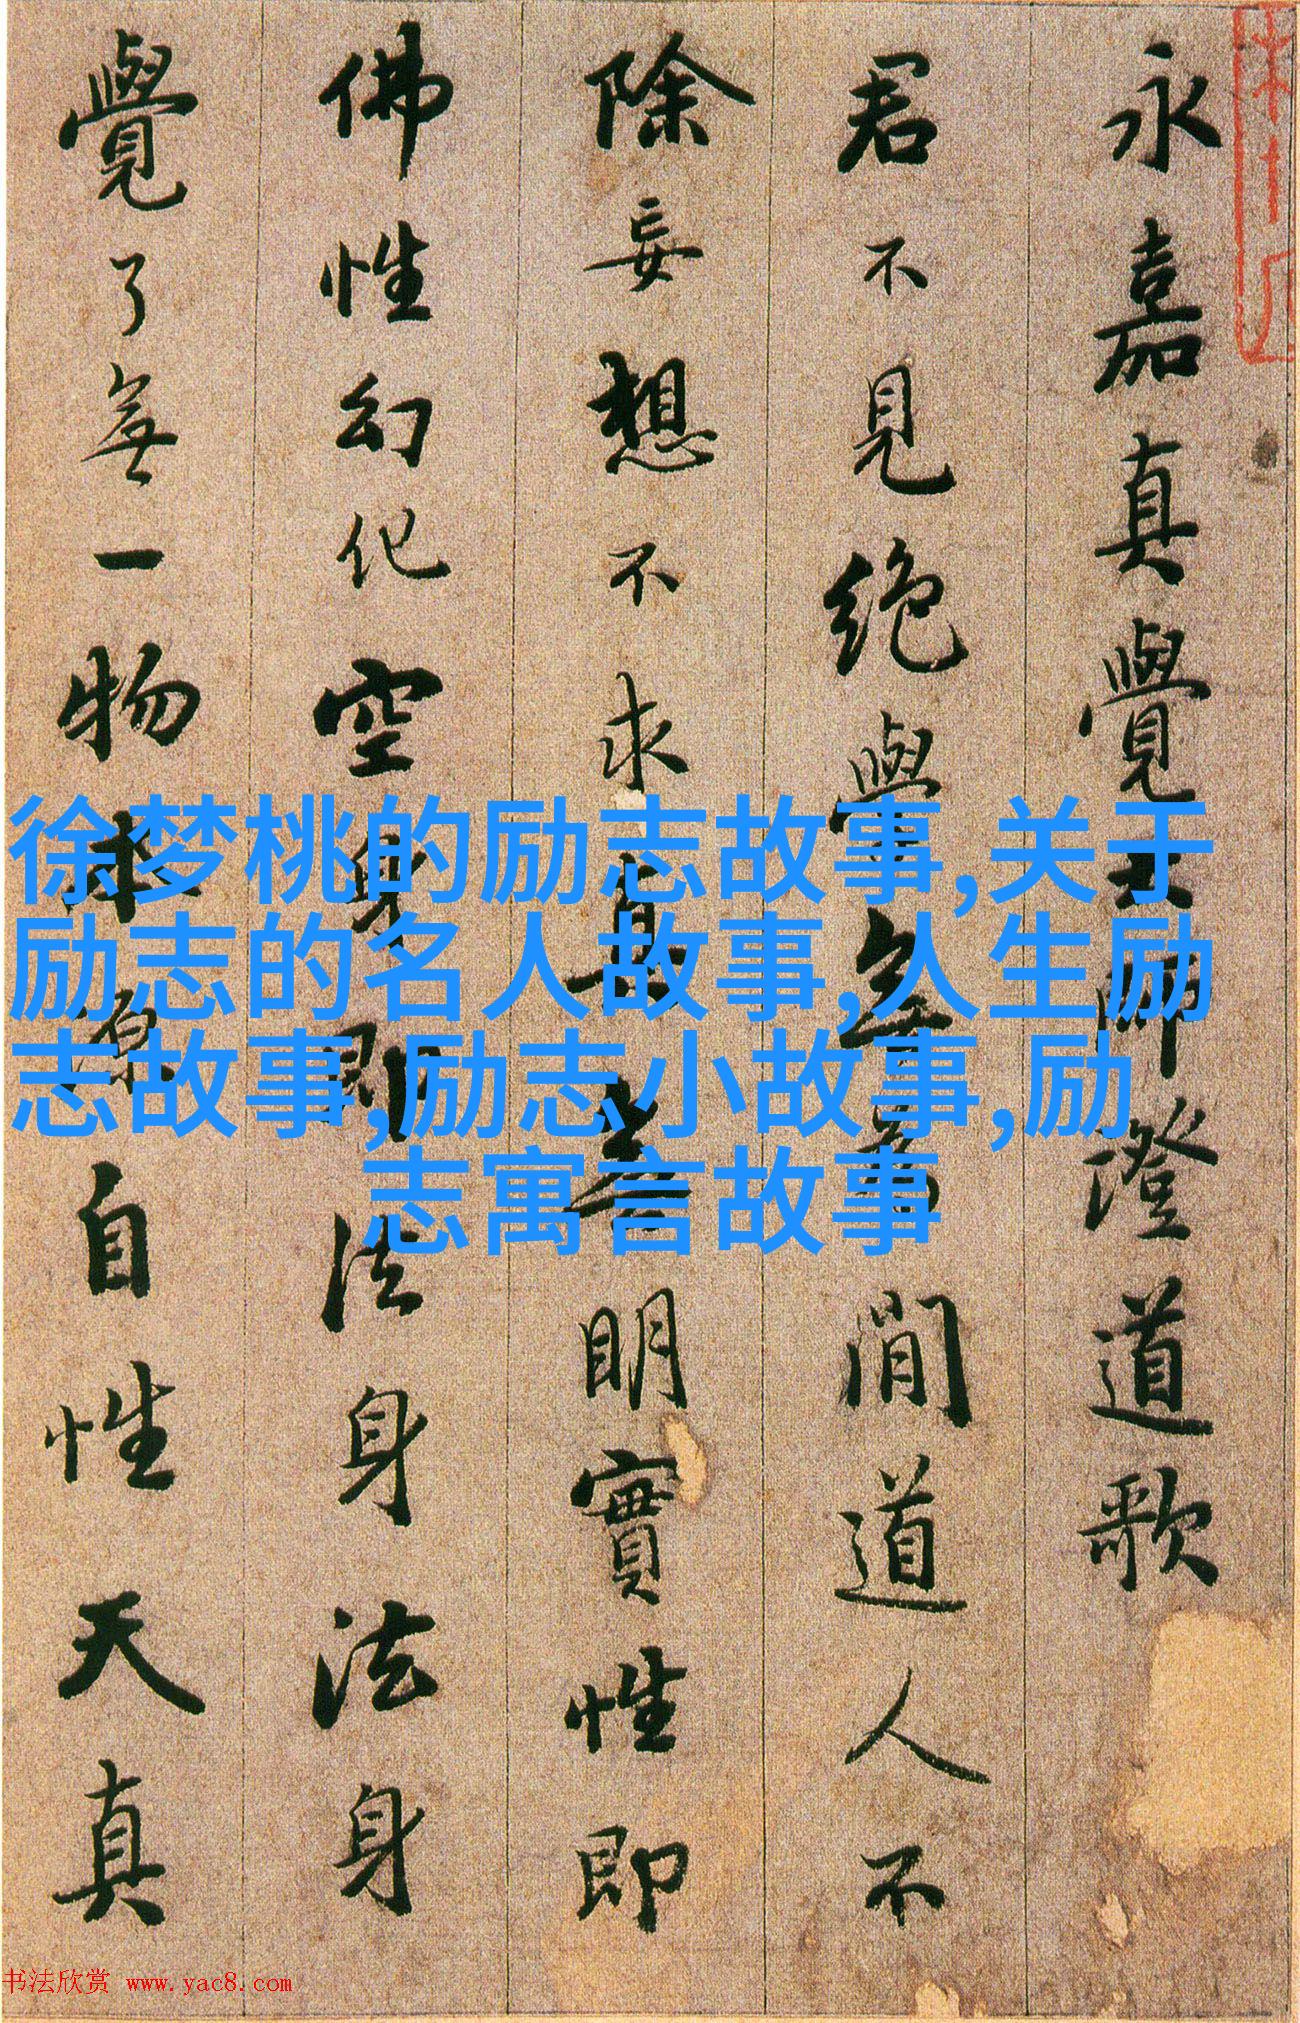 永嘉真覺大師澄道歌
君不見絕學無為閒道人不
除妄想不求真無明實性即
佛性幻化空身即法身法身
覺了無一物本源自性天真
徐梦桃的励志故事,关于
励志的名人故事,人生励
志故事,励志小故事,励
志寓言故事
书法欣赏 www.yac8.com